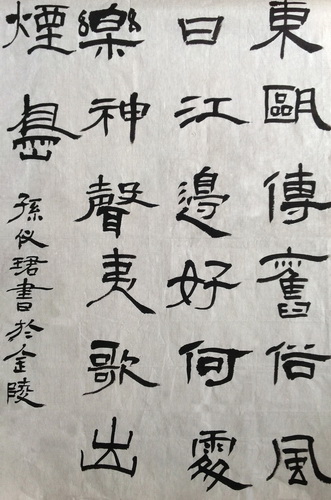 東甌傳舊俗風
日江邊好何處
樂神聲夷歌出
煙島
孫仪珺書於金陵